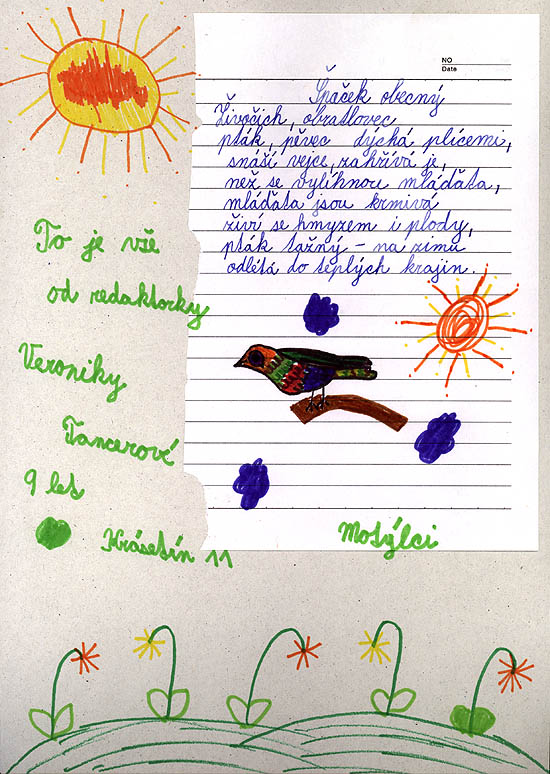 NO
Date
Špaček obecný
Živočich, obratlovec
pták, pěvec dýchá plícemi,
snáší vejce, zahřívá je,
než se vylíhnou mláďata,
mláďata jsou krmivá
živí se hmyzem i plody,
pták tažný - na zimu
odlétá do teplých krajin.
To je vše
od redaktorky
Veroniky
Tancerové
9 let
Krásetín 11
Motýlci